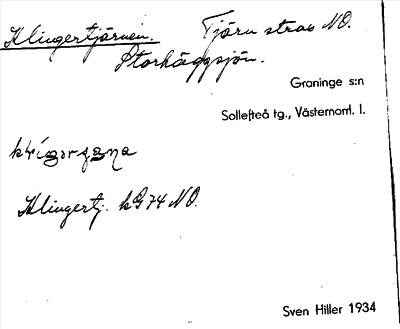 Klingertjärnen. Tjärn strax NO.
Storhäggsjön.
Graninge s:n
Sollefteå tg., Västernorrl. l.
Klingertj. kG74 NO.
Sven Hiller 1934